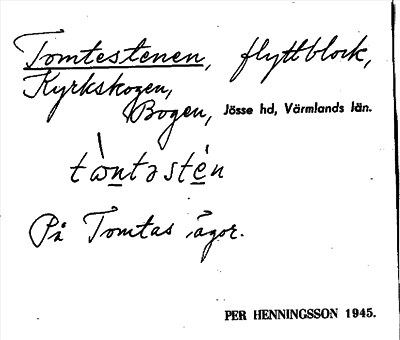 Tomtestenen, flyttblock,
Kyrkskogen,
Bogen, Jösse hd, Värmlands län.
tὼntəstén
På Tomtas ägor.
PER HENNINGSSON 1945.